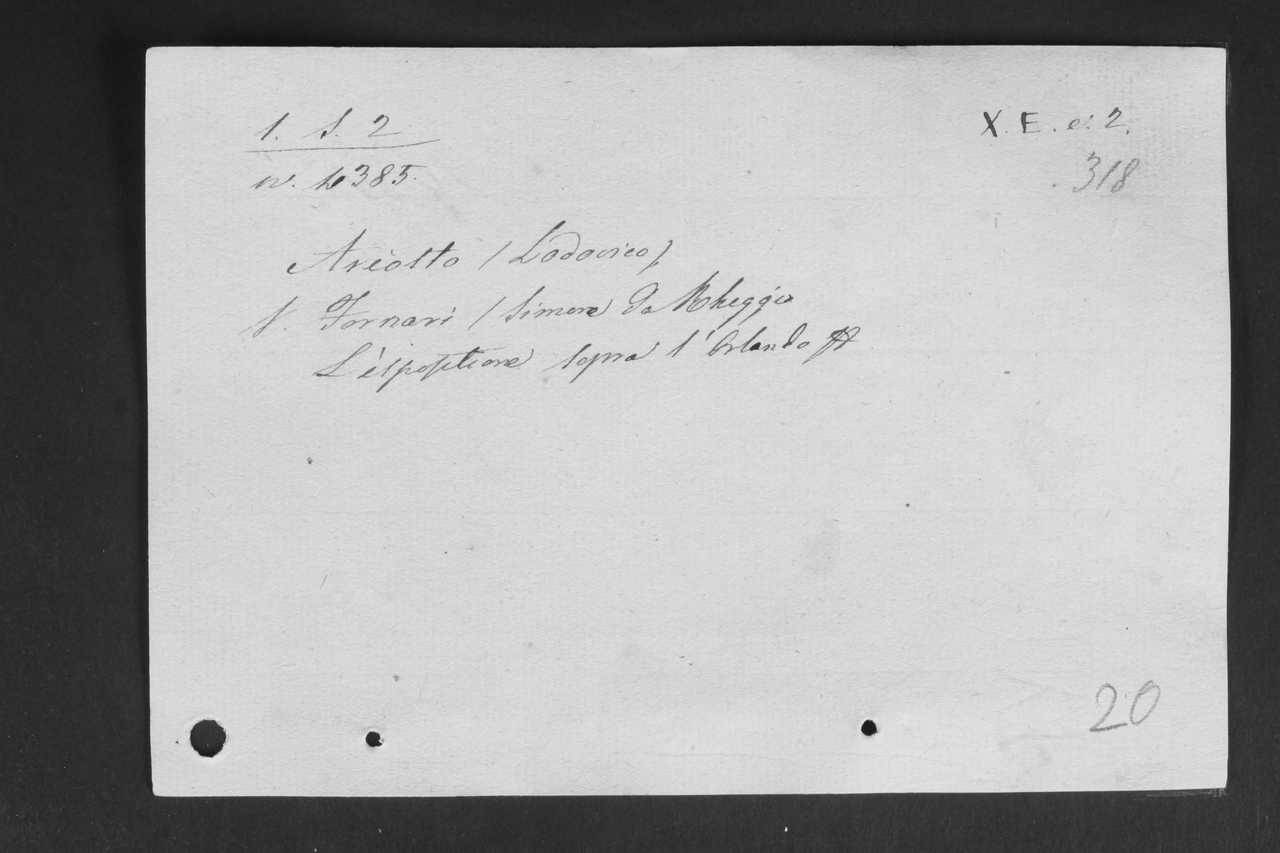 1. S. 2
X. E. e. 2.
w. 1385.
318
Ariosto / Lodovico /
s. Fornari / Simone da Rheggio
L'espositione sopra l'Orlando
20